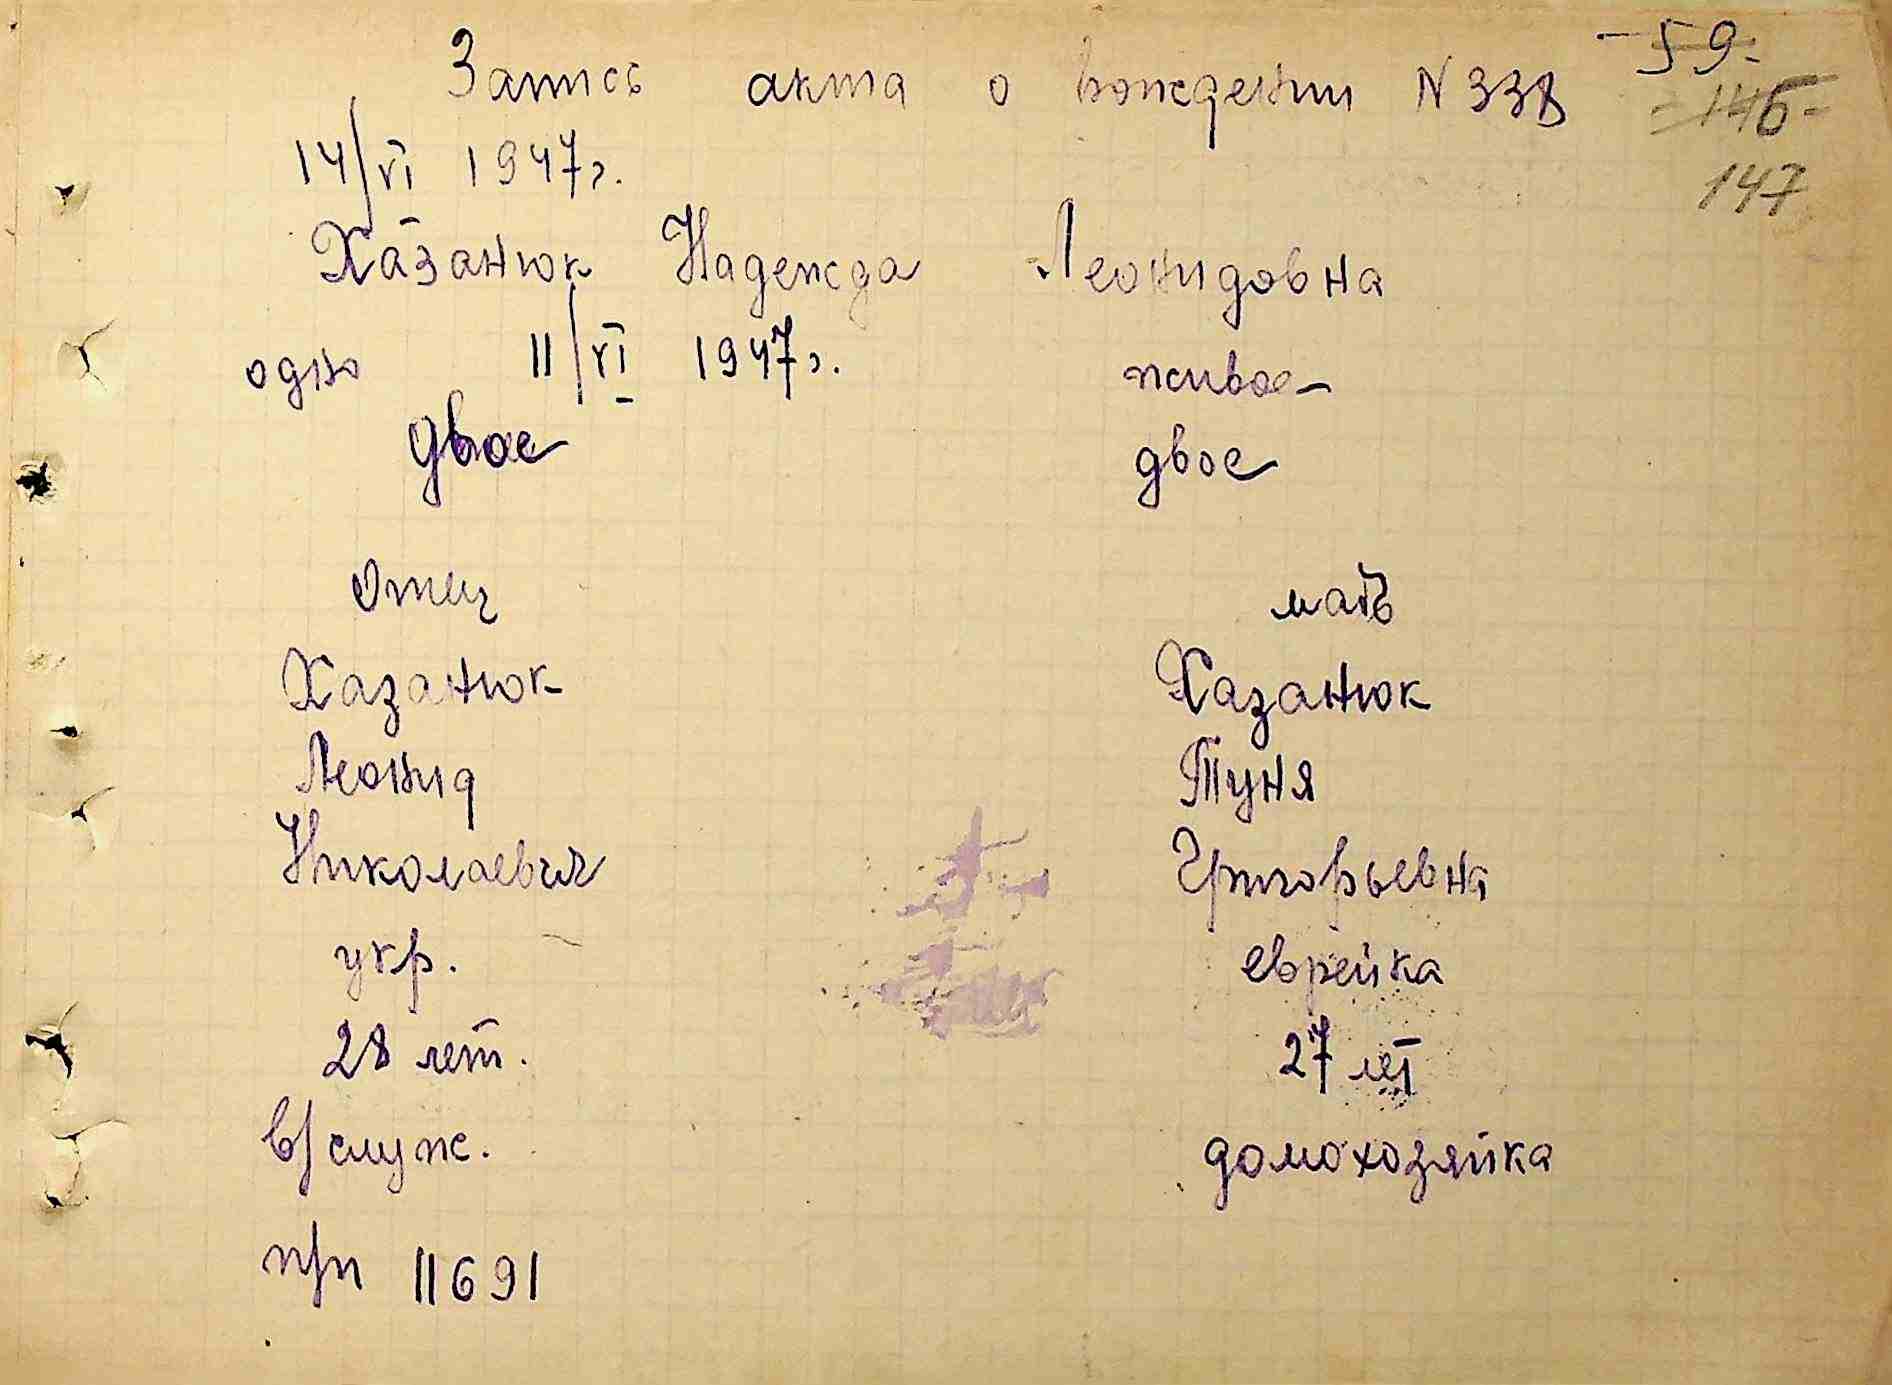 Запись акта о рождении N 338
-59-
-146-
147
14/VI 1947г.
Хазанюк Надежда Леонидовна
одно 11/VI 1947г. живое
двое двое
Отец мать
Хазанюк Хазанюк
Леонид Туня
Николаевич Григорьевна
укр. еврейка
28 лет. 27 лет
в/служ. домохозяйка
п/п 11691